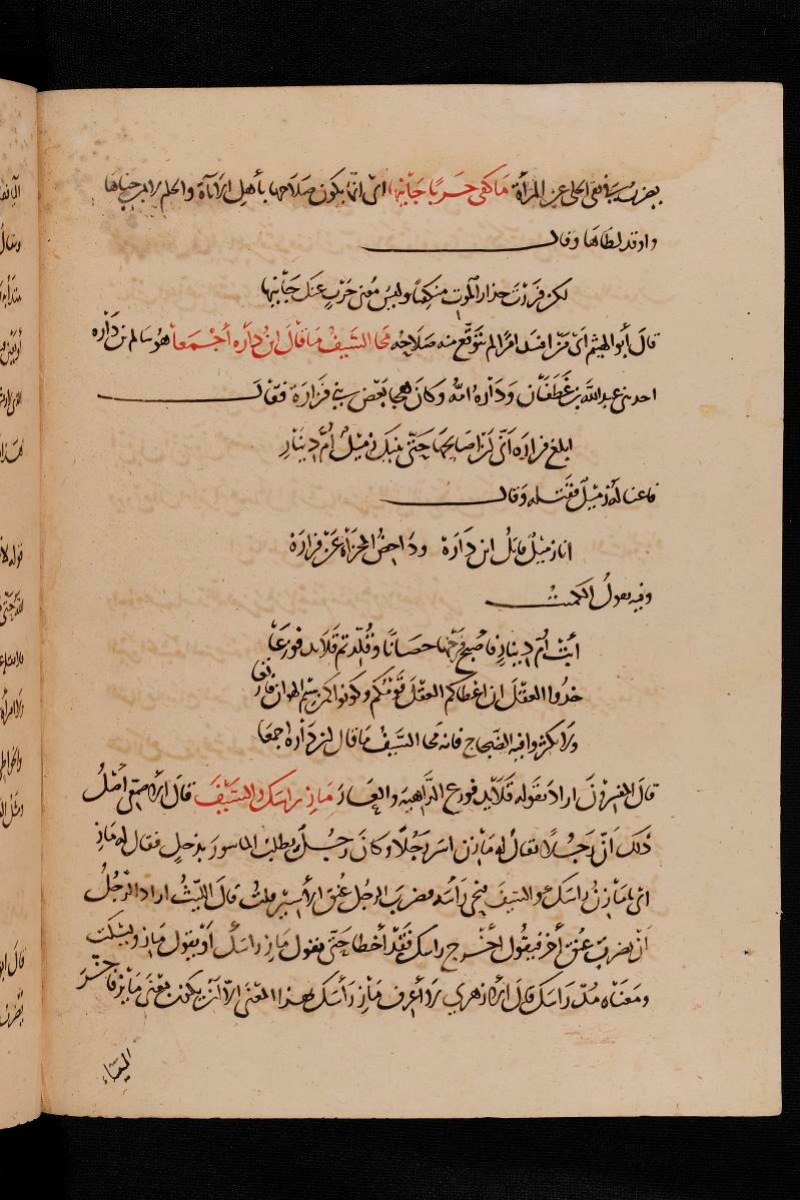 يضرب في نفي الحلي عن المرأة ما كفى حربا جانيها اي انما يكون صلاحها بأهل الاناة والحلم لا بمن جناها
واوقد لظاها وقال
لكن فررت حذار الموت منكفتا وليس مغني حرب عنك جانيها
قال أبو الهيثم اي من افسد امرا لم يتوقع منه صلاحه محا السيف ما قال ابن داره أجمعا هو سالم بن داره
احد بني عبد الله بن غطفان وداره امه وكان هجا بعض بني فزارة فقال
ابلغ فزاره اني لن اصالحها حتى ينيك زميل أم دينار
فاغتاله زميل فقتله وقال
انا زميل قاتل ابن دارة وداحض المخزاة عن فزارة
وفيه يقول الكميت
أبت أم دينار فأصبح فرجها حصانا وقلدتم قلائد قوزعا
خذوا العقل ان اعطاكم العقل قومكم وكونوا كمن سيم الهوان فارتعا
ولا تكثروا فيه الضجاج فانه محا السيف ما قال ابن داره اجمعا
قال المفسرون اراد بقوله قلائد قوزع الداهية والعار ماز راسك والسيف قال الاصمعي أصل
ذلك أن رجلا يقال له مازن اسر رجلا وكان رجل يطلب الماسور بذحل فقال له ماز
اي يا مازن راسك والسيف فنحى رأسه فضرب الرجل عنق الأسير قلت قال الليث اراد الرجل
أن يضرب عنق آخر فيقول أخرج راسك فقد أخطأ حتى يقول ماز راسك أو يقول ماز ويسكت
ومعناه مد راسك قال الازهري لا أعرف ماز رأسك بهذا المعنى الا أن يكون بمعنى مايز فأخر
الياء